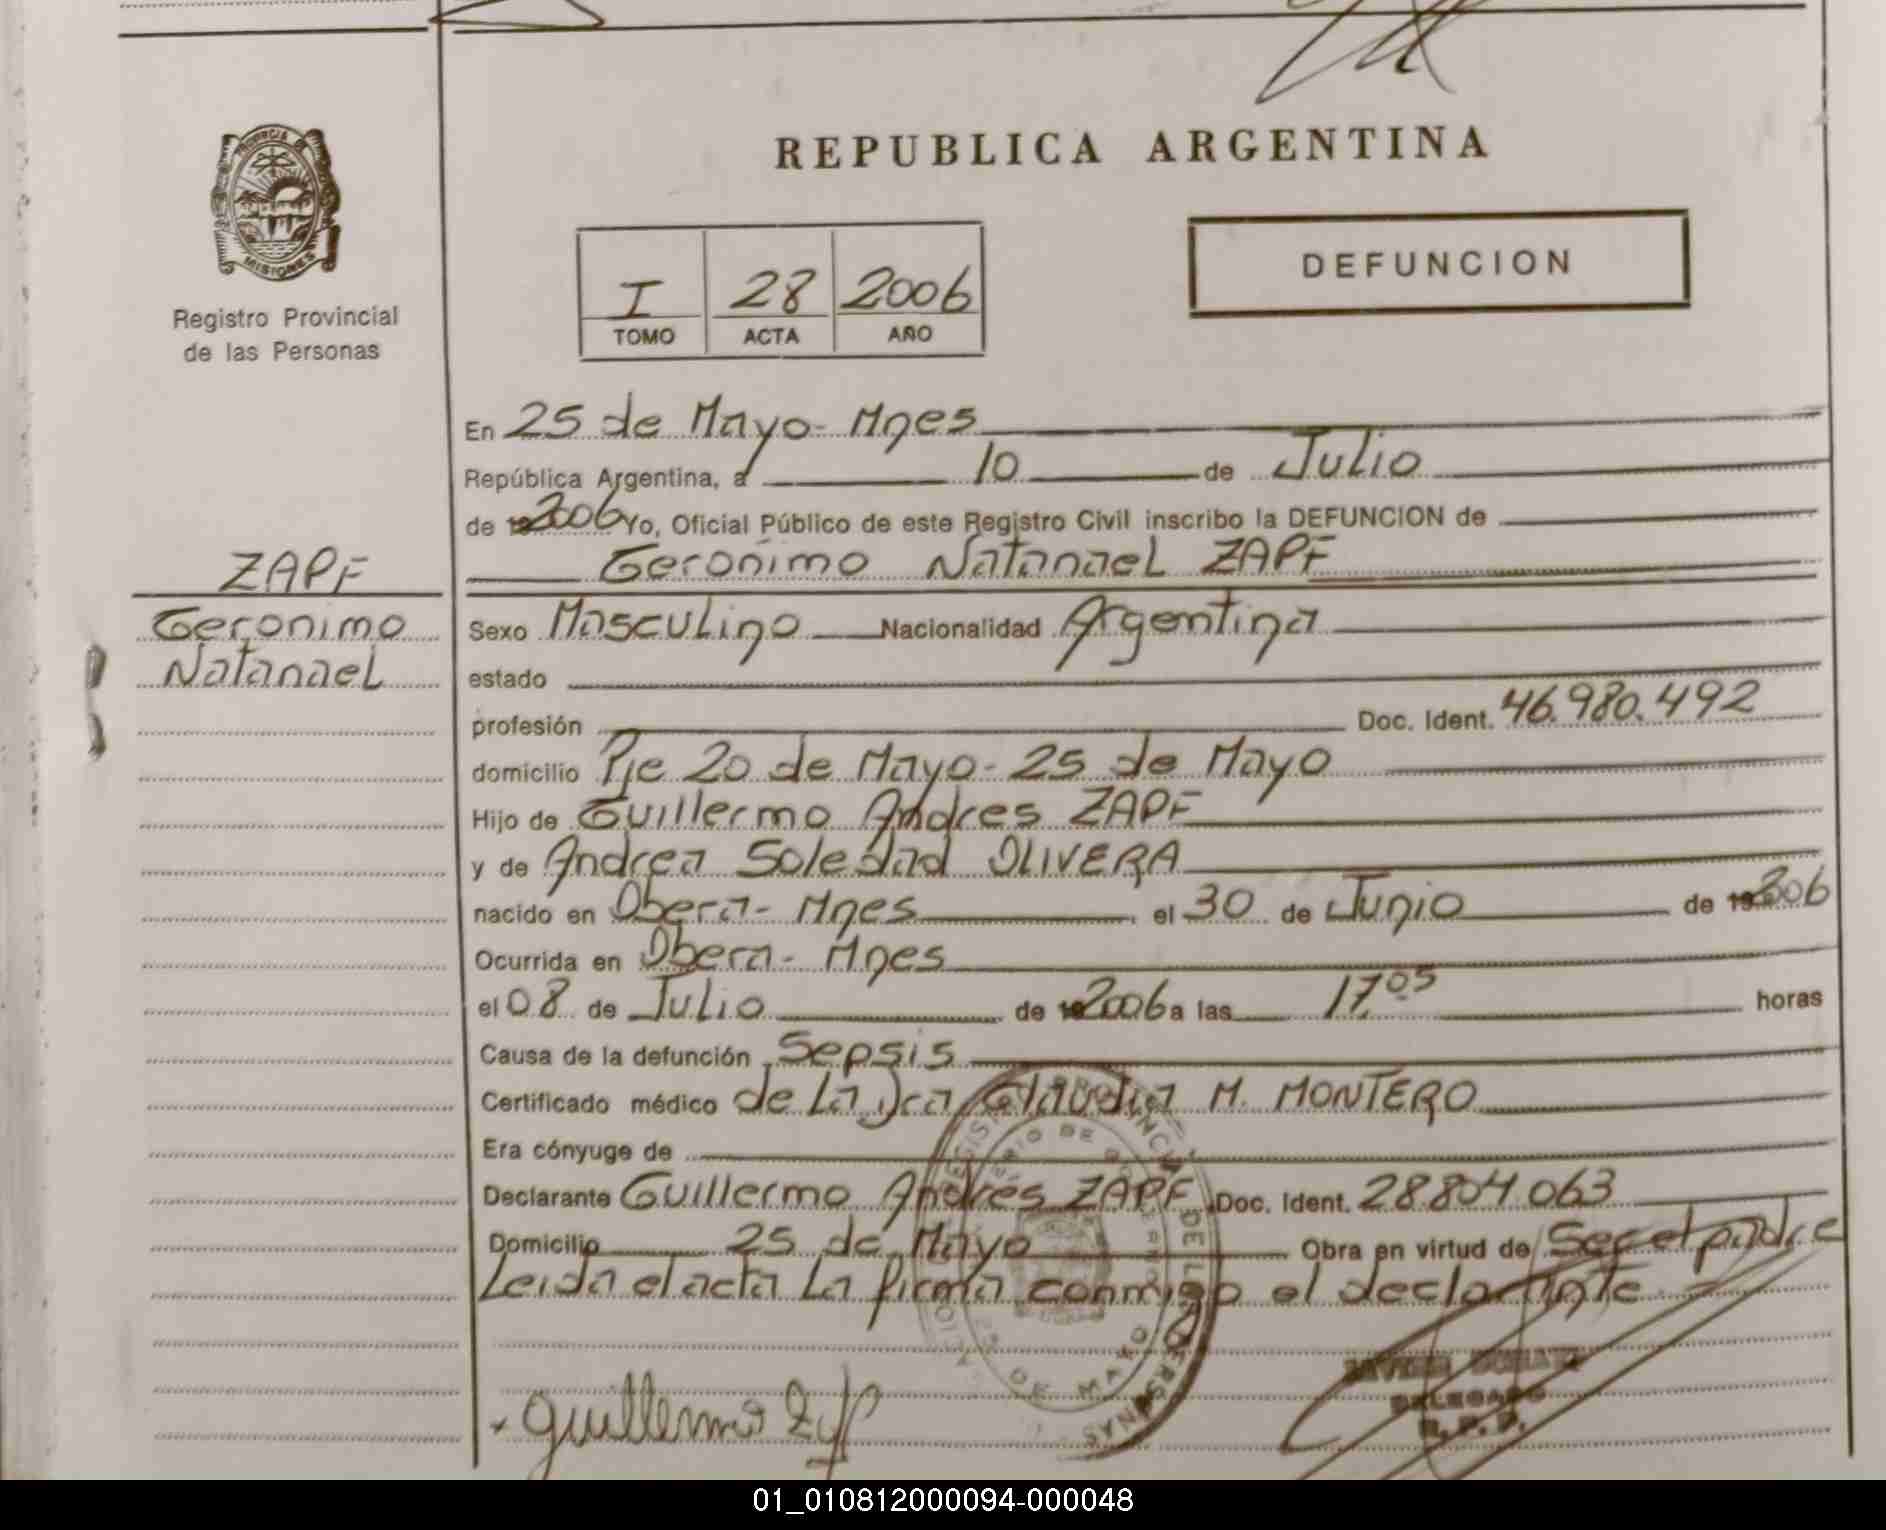 REPUBLICA ARGENTINA
PROVINCIA DE
MISIONES
Registro Provincial
de las Personas
I 28 2006
TOMO ACTA AÑO
DEFUNCION
En 25 de Mayo- Mnes
República Argentina, a 10 de Julio
de 2006 Yo, Oficial Público de este Registro Civil inscribo la DEFUNCION de
Geronimo Natanael ZAPF
ZAPF
Geronimo
Natanael
Sexo Masculino Nacionalidad Argentina
estado
profesión Doc. Ident. 46.980.492
domicilio Pje 20 de Mayo- 25 de Mayo
Hijo de Guillermo Andres ZAPF
y de Andrea Soledad OLIVERA
nacido en Obera- Mnes el 30 de Junio de 2006
Ocurrida en Obera- Mnes
el 08 de Julio de 2006 a las 17,05 horas
Causa de la defunción Sepsis
Certificado médico de La Dra Claudia M. MONTERO
Era cónyuge de
Declarante Guillermo Andrés ZAPF Doc. Ident. 28.804.063
Domicilio 25 de Mayo Obra en virtud de Ser el padre
Leida el acta La firma conmigo el declarante
Guillermo Zapf
DELEGADO
R.P.P.
01_010812000094-000048